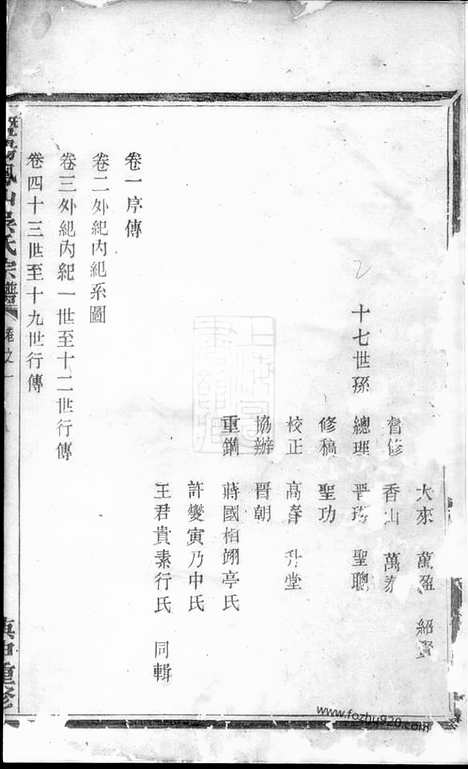 大來 萬盈 紹賢
嘗修 香山 萬泰
十七世孫 總理 平 聖聰
修稿 聖功
校正 高春 升堂
協辦 晋朝
重鐫 蔣國栢翊亭氏
許變寅乃中氏
王君貴素行氏 同輯
卷一序傳
卷二外紀內紀系圖
卷三外紀內紀一世至十二世行傳
卷四十三世至十九世行傳
暨陽鳳山吳氏宗譜 卷之一
重修
www.fozhu920.com